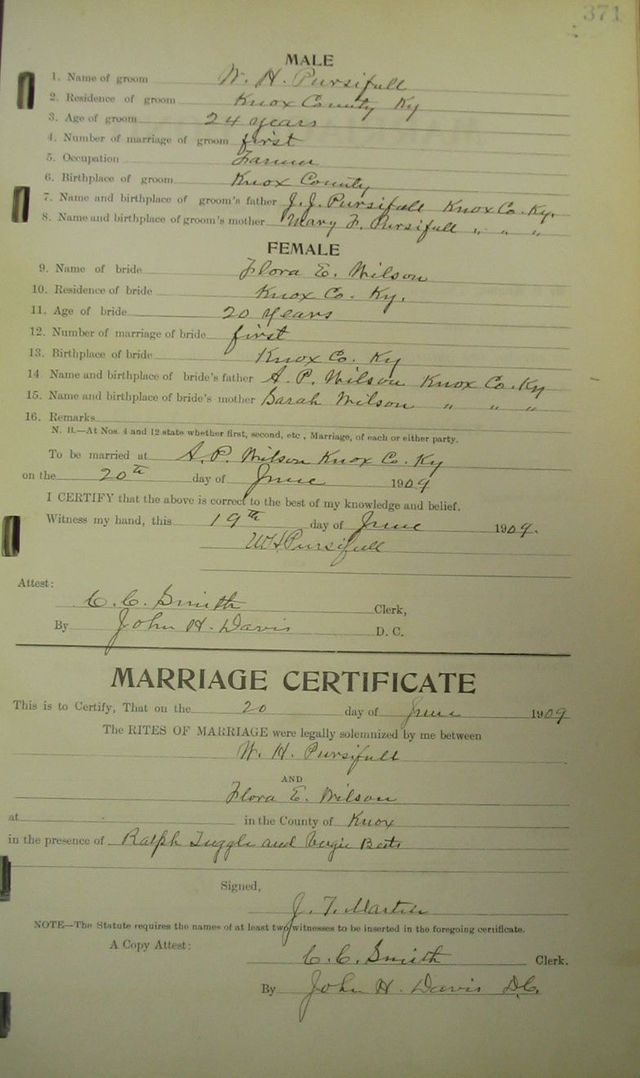 371
MALE
1. Name of groom W. H. Pursifull
2. Residence of groom Knox County Ky
3. Age of groom 24 years
4. Number of marriage of groom first
5. Occupation Farmer
6. Birthplace of groom Knox County
7. Name and birthplace of groom's father J. J. Pursifull Knox Co. Ky.
8. Name and birthplace of groom's mother Mary F. Pursifull " " "
FEMALE
9. Name of bride Flora E. Wilson
10. Residence of bride Knox Co. Ky.
11. Age of bride 20 years
12. Number of marriage of bride first
13. Birthplace of bride Knox Co. Ky
14 Name and birthplace of bride's father A. P. Wilson Knox Co. Ky
15. Name and birthplace of bride's mother Sarah Wilson " " "
16. Remarks
N. B.—At Nos. 4 and 12 state whether first, second, etc., Marriage, of each or either party.
To be married at A. P. Wilson Knox Co. Ky
on the 20th day of June 1909
I CERTIFY that the above is correct to the best of my knowledge and belief.
Witness my hand, this 19th day of June 1909.
WH Pursifull
Attest:
C. C. Smith Clerk,
By John H. Davis D. C.
MARRIAGE CERTIFICATE
This is to Certify, That on the 20 day of June 1909
The RITES OF MARRIAGE were legally solemnized by me between
W. H. Pursifull
AND
Flora E. Wilson
at in the County of Knox
in the presence of Ralph Tuggle and
Signed,
J. T. Martin
NOTE—The Statute requires the names of at least two witnesses to be inserted in the foregoing certificate.
A Copy Attest:
C. C. Smith Clerk.
By John H. Davis D.C.